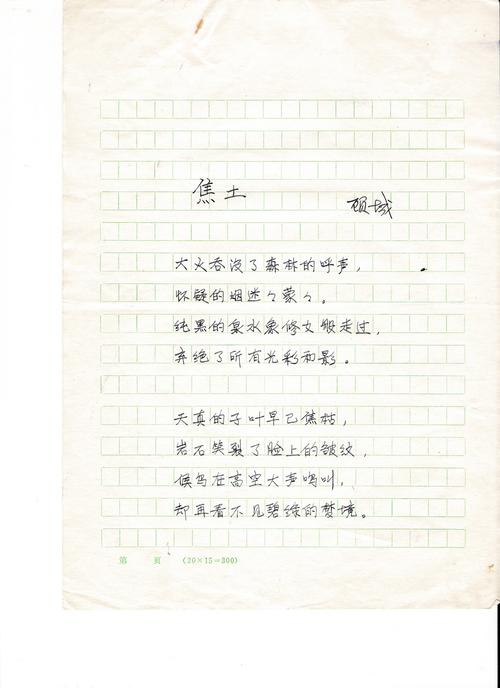 焦土
顾城
大火吞没了森林的呼声，
怀疑的烟迷々蒙々。
纯黑的泉水象修女般走过，
弃绝了所有光彩和影。
天真的子叶早已焦枯，
岩石笑裂了脸上的皱纹，
候鸟在高空大声鸣叫，
却再看不见碧绿的梦境。
第 页 (20×15=300)